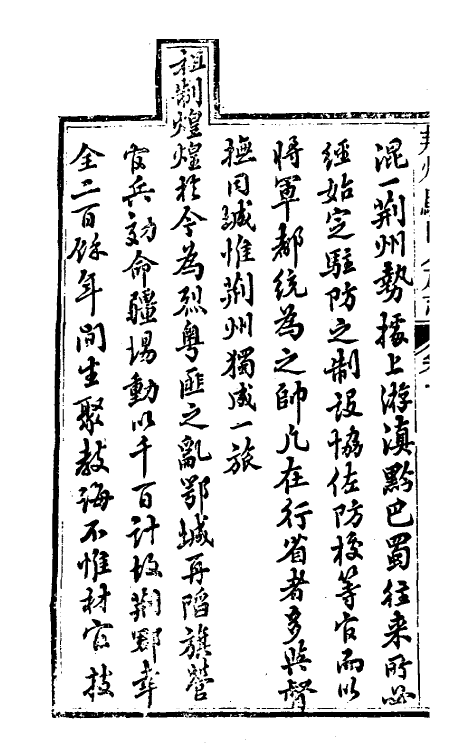 混一荆州勢據上游滇黔巴蜀往来所必
經始定駐防之制設協佐防校等官而以
将軍都統為之帥凡在行省者多與督
撫同城惟荆州獨成一旅
祖制煌煌於今為烈粤匪之亂鄂城再陷旗營
官兵効命疆場動以千百計故荆郡幸
全二百餘年間生聚教誨不惟材官技